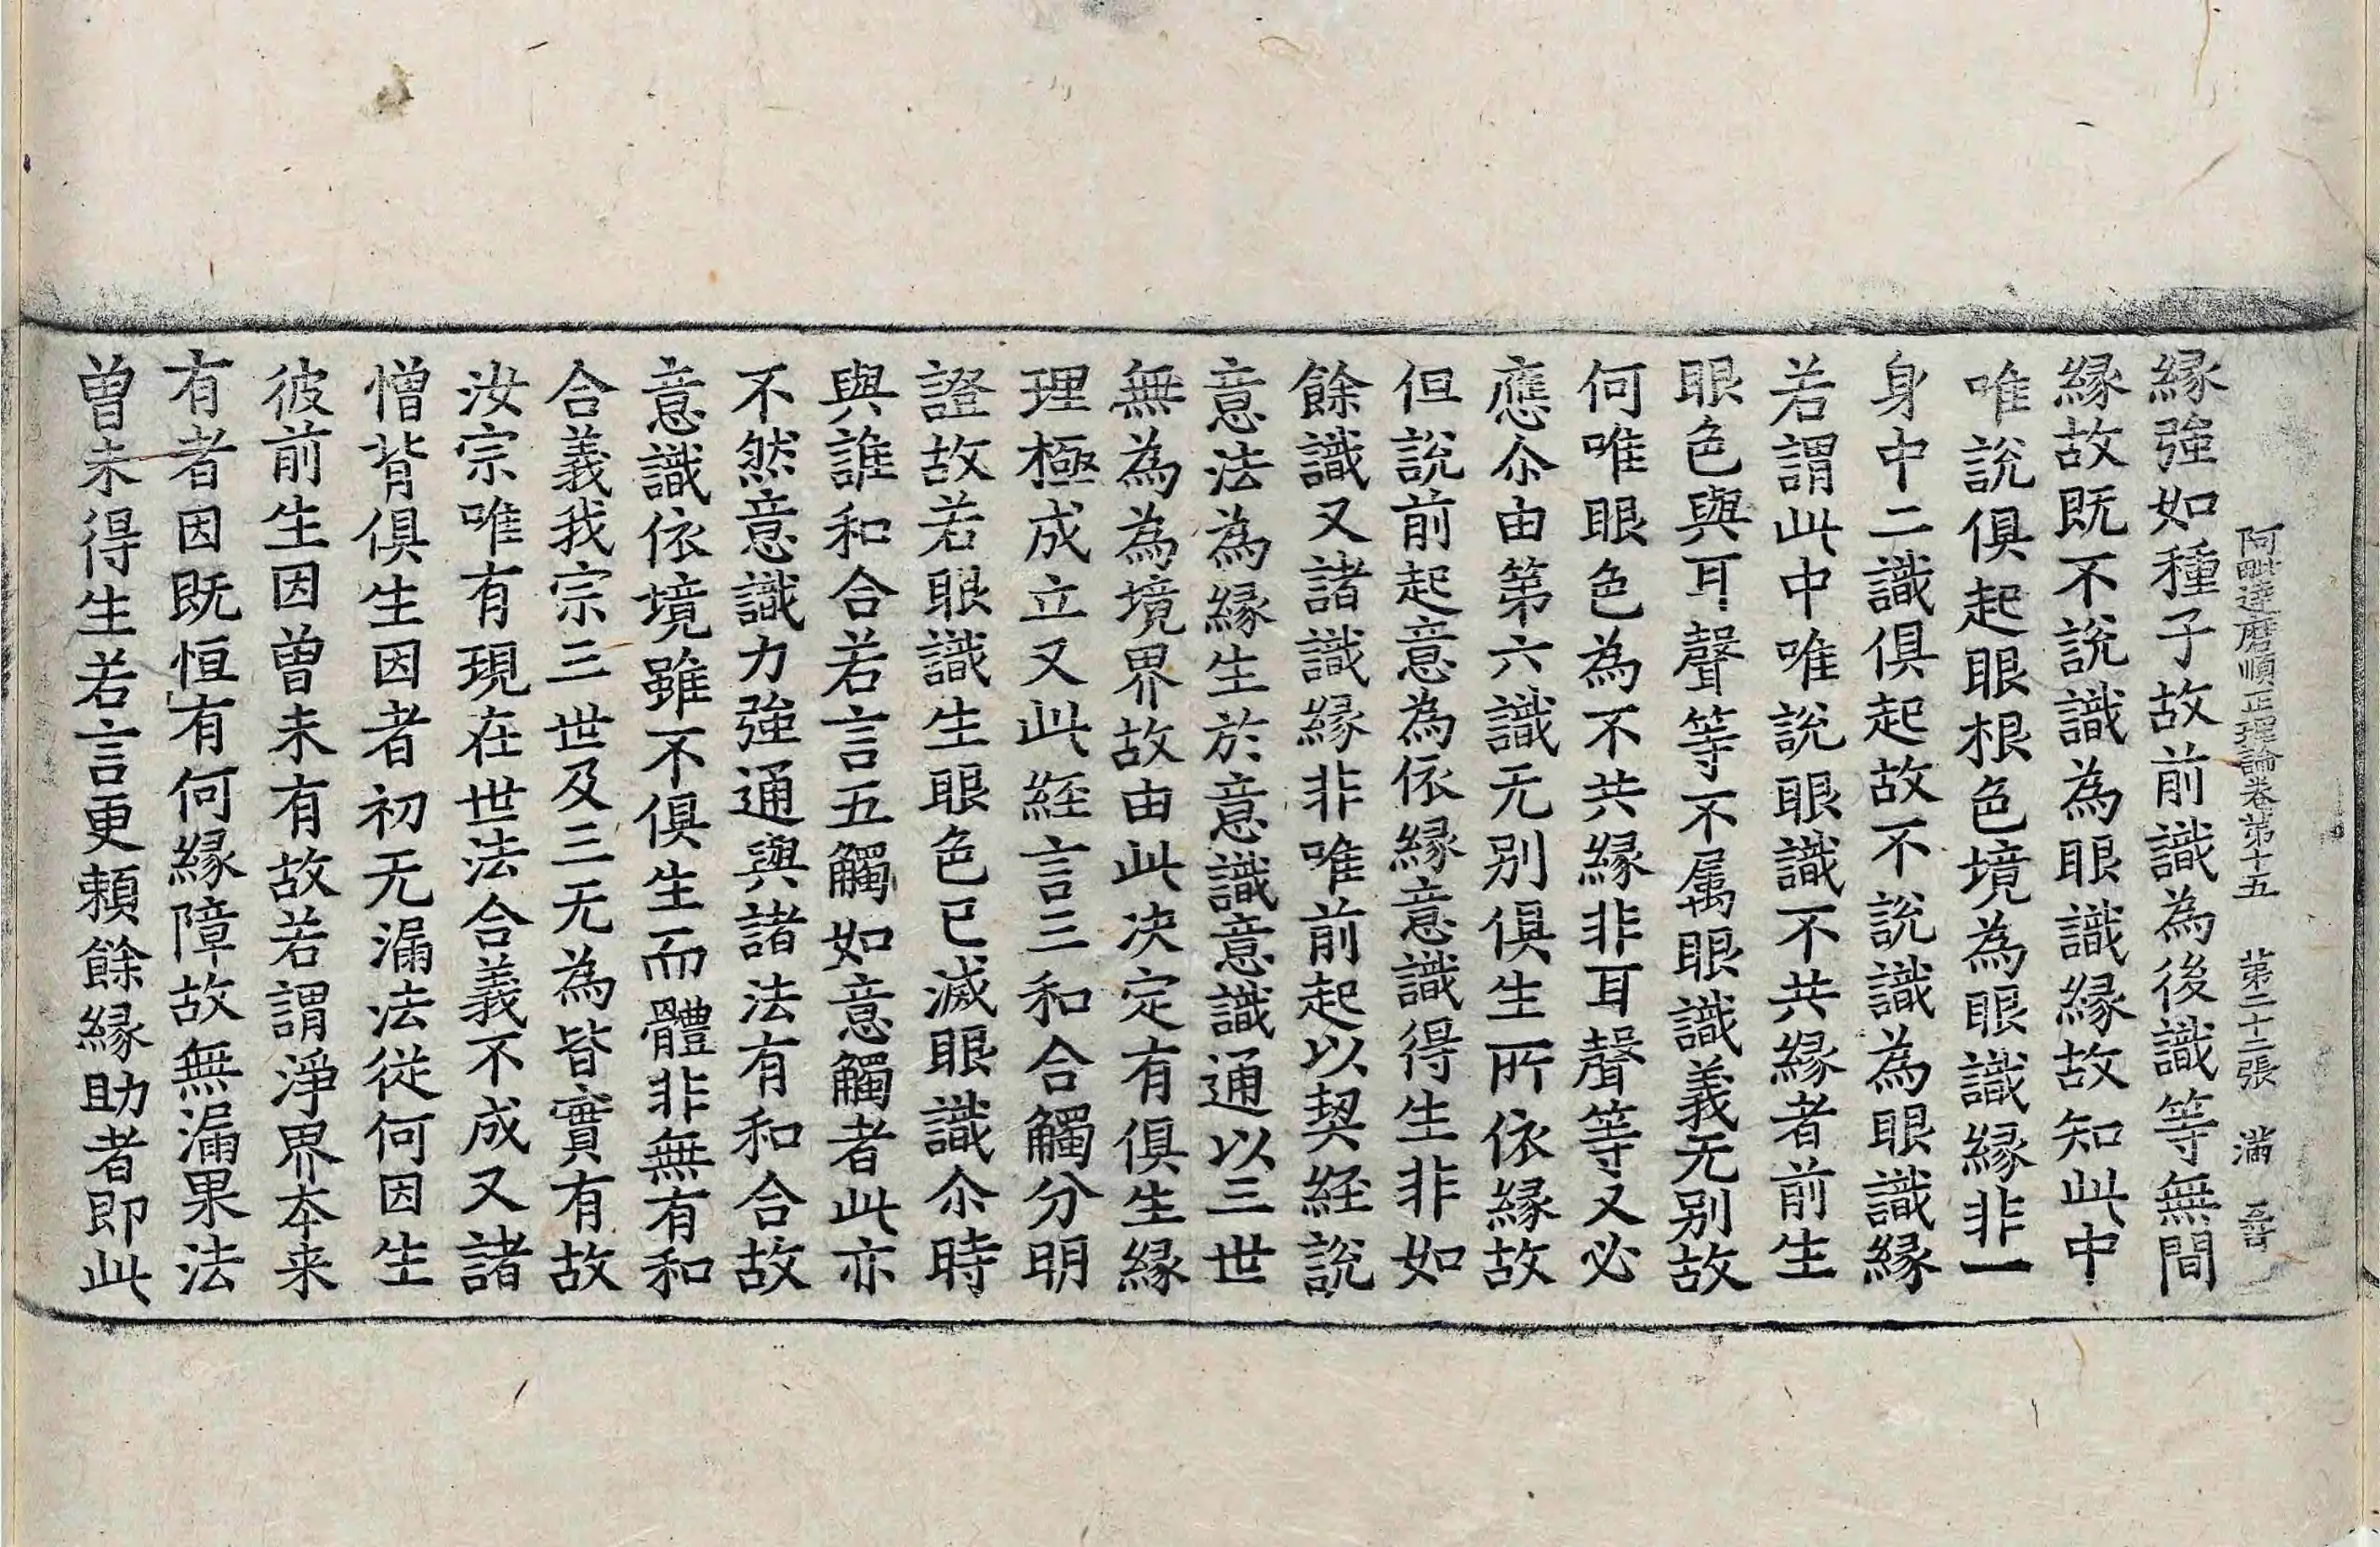 阿毗達磨順正理論卷第十五　第二十二張　滿
緣強如種子故前識為後識等無間
緣故既不說識為眼識緣故知此中
唯說俱起眼根色境為眼識緣非一
身中二識俱起故不說識為眼識緣
若謂此中唯說眼識不共緣者前生
眼色與耳聲等不属眼識義无别故
何唯眼色為不共緣非耳聲等又必
應尒由第六識无别俱生所依緣故
但說前起意為依緣意識得生非如
餘識又諸識緣非唯前起以契經說
意法為緣生於意識意識通以三世
無為為境界故由此决定有俱生緣
理極成立又此經言三和合觸分明
證故若眼識生眼色已滅眼識尒時
與誰和合若言五觸如意觸者此亦
不然意識力強通與諸法有和合故
意識依境雖不俱生而體非無有和
合義我宗三世及三无為皆實有故
汝宗唯有現在世法合義不成又諸
憎背俱生因者初无漏法從何因生
彼前生因曾未有故若謂淨界本来
有者因既恒有何緣障故無漏果法
曾未得生若言更賴餘緣助者即此